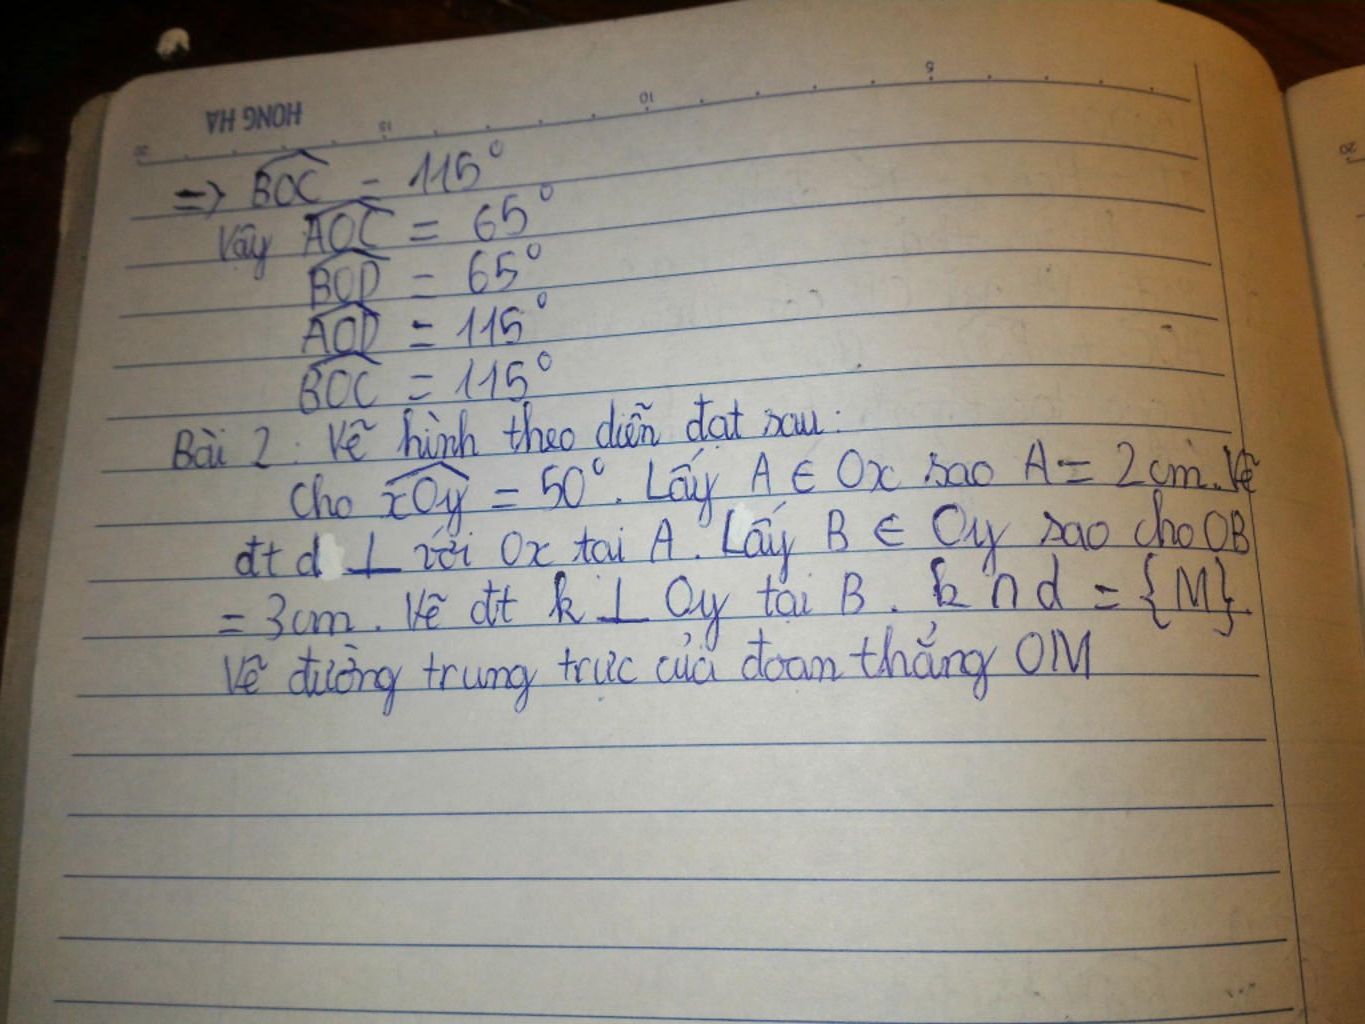 HONG HA
20 15 10 5
=> BOC = 115°
Vậy AOC = 65°
BOD = 65°
AOD = 115°
BOC = 115°
Bài 2: Vẽ hình theo diễn đạt sau:
Cho xOy = 50°. Lấy A ∈ Ox sao A = 2cm. Vẽ
đt d ⊥ với Ox tại A. Lấy B ∈ Oy sao cho OB
= 3cm. Vẽ đt k ⊥ Oy tại B. k ∩ d = {M}.
Vẽ đường trung trực của đoạn thẳng OM
20